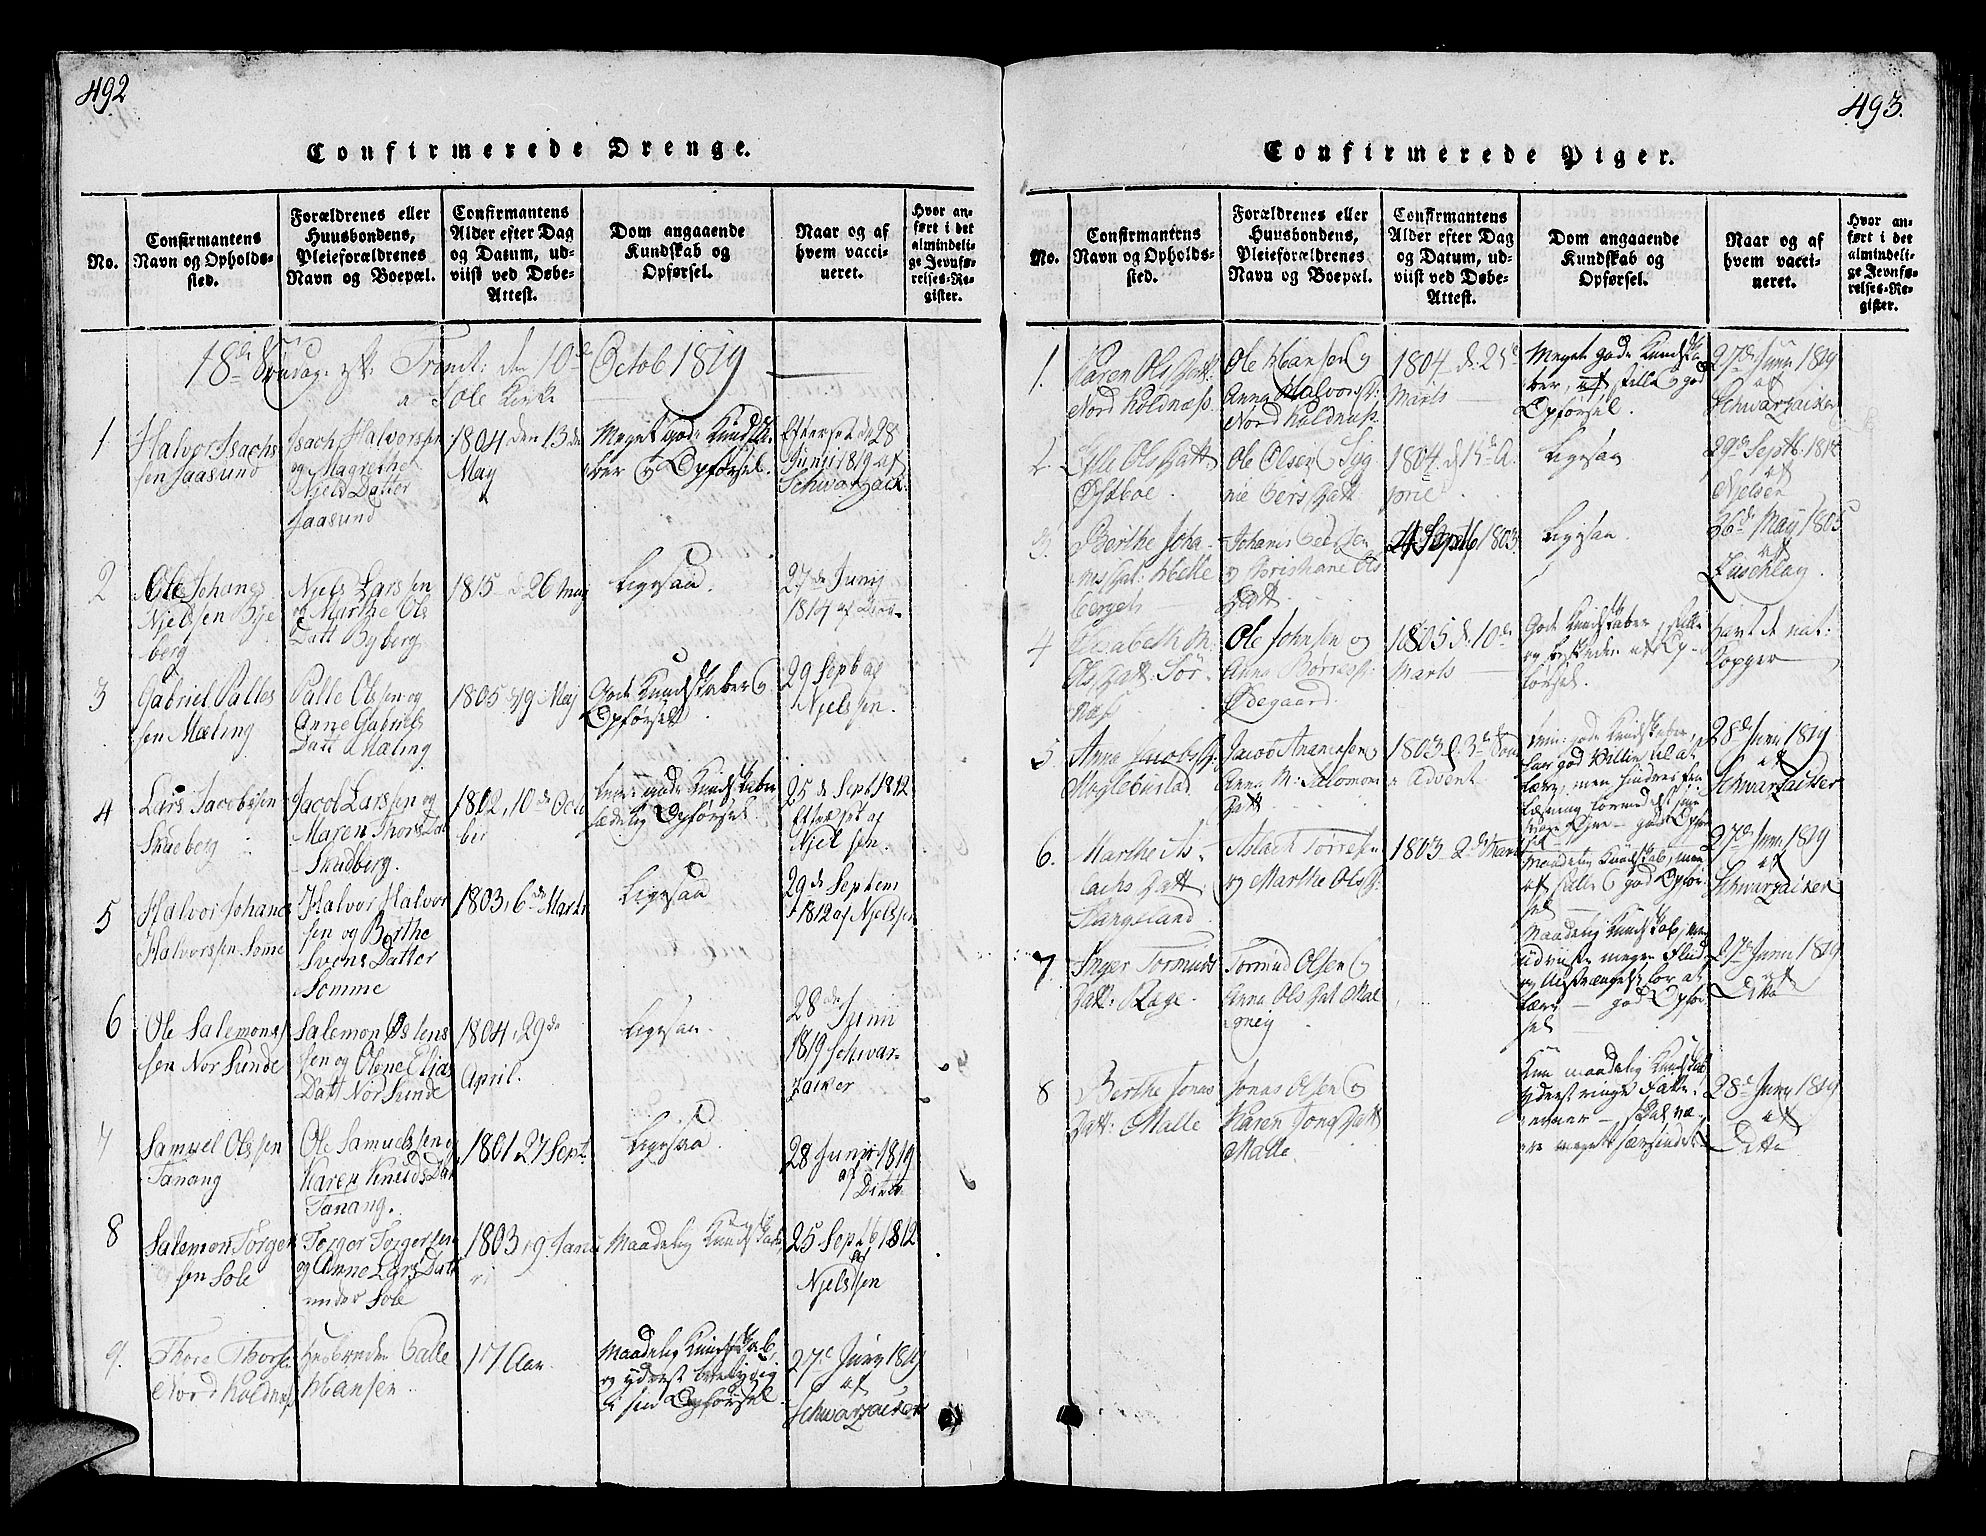 492
Confirmerede Drenge.
No.
Confirmantens
Navn og Opholds-
sted.
Forældrenes eller
Huusbondens,
Pleieforældrenes
Navn og Boepæl.
Confirmantens
Alder efter Dag
og Datum, ud-
viist ved Døbe-
Attest.
Dom angaaende
Kundskab og
Opførsel.
Naar og af
hvem vacci-
neret.
Hvor an-
ført i det
almindeli-
ge Jevnfø-
relses-Re-
gister.
18de Søndag. eft. Trinit: den 10de Octob 1819
Sole Kirke
1
Halvor Isachs
sen Jaasund
Isach Halvorssen
og Magrethe
Njels Datter
Jaasund
1804 den 13 de
May
Meget gode Kundska-
ber og Opførsel.
Efterset de 28
Junii 1819 af
Schwarzack.
2
Ole Johanes
Nielssen Bye
berg
Niels Larssen
og Marthe Ols
Datt Byberg
1815 d 26 May
Ligesaa
27 de Junij
1819 af
3
Gabriel Palles
sen Mæling
Palle Olssen og
Anne Gabriels
Datt Mæling
1805 19 Maj
Gode Kundskaber og
Opførsel
29 Septb af
Njelssen.
4
Lars Jacobssen
Skudberg
Jacob Larssen og
Maren Thors Dat
Skudberg.
1802, 10 de Octo
ber
gode Kundskaber
sædelig Opførsel.
25 de Sept 1812
Efterset af
Njelssen.
5
Halvor Johanes
Halvorssen Somme
Halvor Halvor
sen og Berthe
Svens Datter
Somme
1803, 6 de Marts
Ligesaa
29 de Septem
1812 af Njelssen
6
Ole Salemons
sen Nor Sunde
Salemon Østens
sen og Olene Elias
Datt Nor Sunde
1804, 29 de
April.
Ligesaa.
28 de Juni
1819 Schwar-
zacker
7
Samuel Olssen
Tanang
Ole Samuelssen og
Karen Knuds Dat
Tanang.
1801 27 Sept.
Ligesaa
28 Junii 1819
af Ditto
8
Salemon Torger
sen Sole
Torger Torgerssen
og Anne Lars Datt
under Sole
1803, 9. Janu
ri
Maadelig Kundskab,
25 Septb 1812
af
Njelssen
9.
Thore Thors
Nord Kolnes
Huusbonden Palle
Hansen.
17 Aar
Maadelig Kundskab,
og yderst
i sin Opførsel.
27de Juny 1819
af
Schwarzacker
493.
Confirmerede Piger.
No.
Confirmantens
Navn og Opholds-
sted.
Forældrenes eller
Huusbondens,
Pleieforældrenes
Navn og Boepæl.
Confirmantens
Alder efter Dag
og Datum, ud-
viist ved Døbe-
Attest.
Dom angaaende
Kundskab og
Opførsel.
Naar og af
hvem vacci-
neret.
Hvor an-
ført i det
almindeli-
ge Jevnfø-
relses-Re-
gister.
1.
Karen Ols Datt:
Nord Koldnæss.
Ole Hansen og
Anna Halvors:
Nord Koldnæss
1804 d. 25de
Marts
Meget gode Kundska-
ber, af stille og god
Opførsel.
27de Juny 1819
af
Schwarzacker
2.
Ols Datt:
Østboe.
Ole Olsen og Syg
nie Datt
1804. d 15de A
pril
Ligesaa
29de Septb. 1812
af
Njelsen
3.
Berthe Joha-
nes Dat: Helle
bergets
Johanes
og Christiane Ols
Datt.
24 Septb 1803.
Ligesaa.
26de May 1805
af
4
Elisabeth M:
Ols Datt: Sør-
næs
Ole Johnsen og
Anna
Ødegaard.
1805 d. 10de
Marts
Gode Kundskaber, stille
og beskeden af Op-
førsel.
Havt de nat:
Kopper
5.
Anna Jacobs D:
Myglebustad
Jacob Ananiasen og
Anna M: Salomons
Datt
1803 d. 3de Sønd
i Advent.
gode Kundskaber,
god Villie til at
lære, men hindret fra
Læsning formedelst
Øjne - god Opfør
sel
28de Juni 1819
af
Schwarzacker
6.
Marthe As-
lachs Datt
Stangeland.
Aslach Torresen
og Marthe Ols D:
1803 2de Marts
Maadelig Kundskab, men
af stille og god Opfør-
sel
27de Juni 1819
af
Schwarzacker
7
Inger Tormods
Datt: Rege.
Tormod Olsen og
Anna Ols Dat
Maadelig Kundskab, men
udviiste megen Flid
og Anstrængelse for at
lære - god Opfør-
sel
27de Juni 1819
af
Ditto
8
Berthe Jonas
Datt: Malle
Jonas Olsen og
Karen Jons Datt
Malle.
Kun maadelig Kundskab
yderst ringe Fatte-
28de Juny 1819
af
Ditto